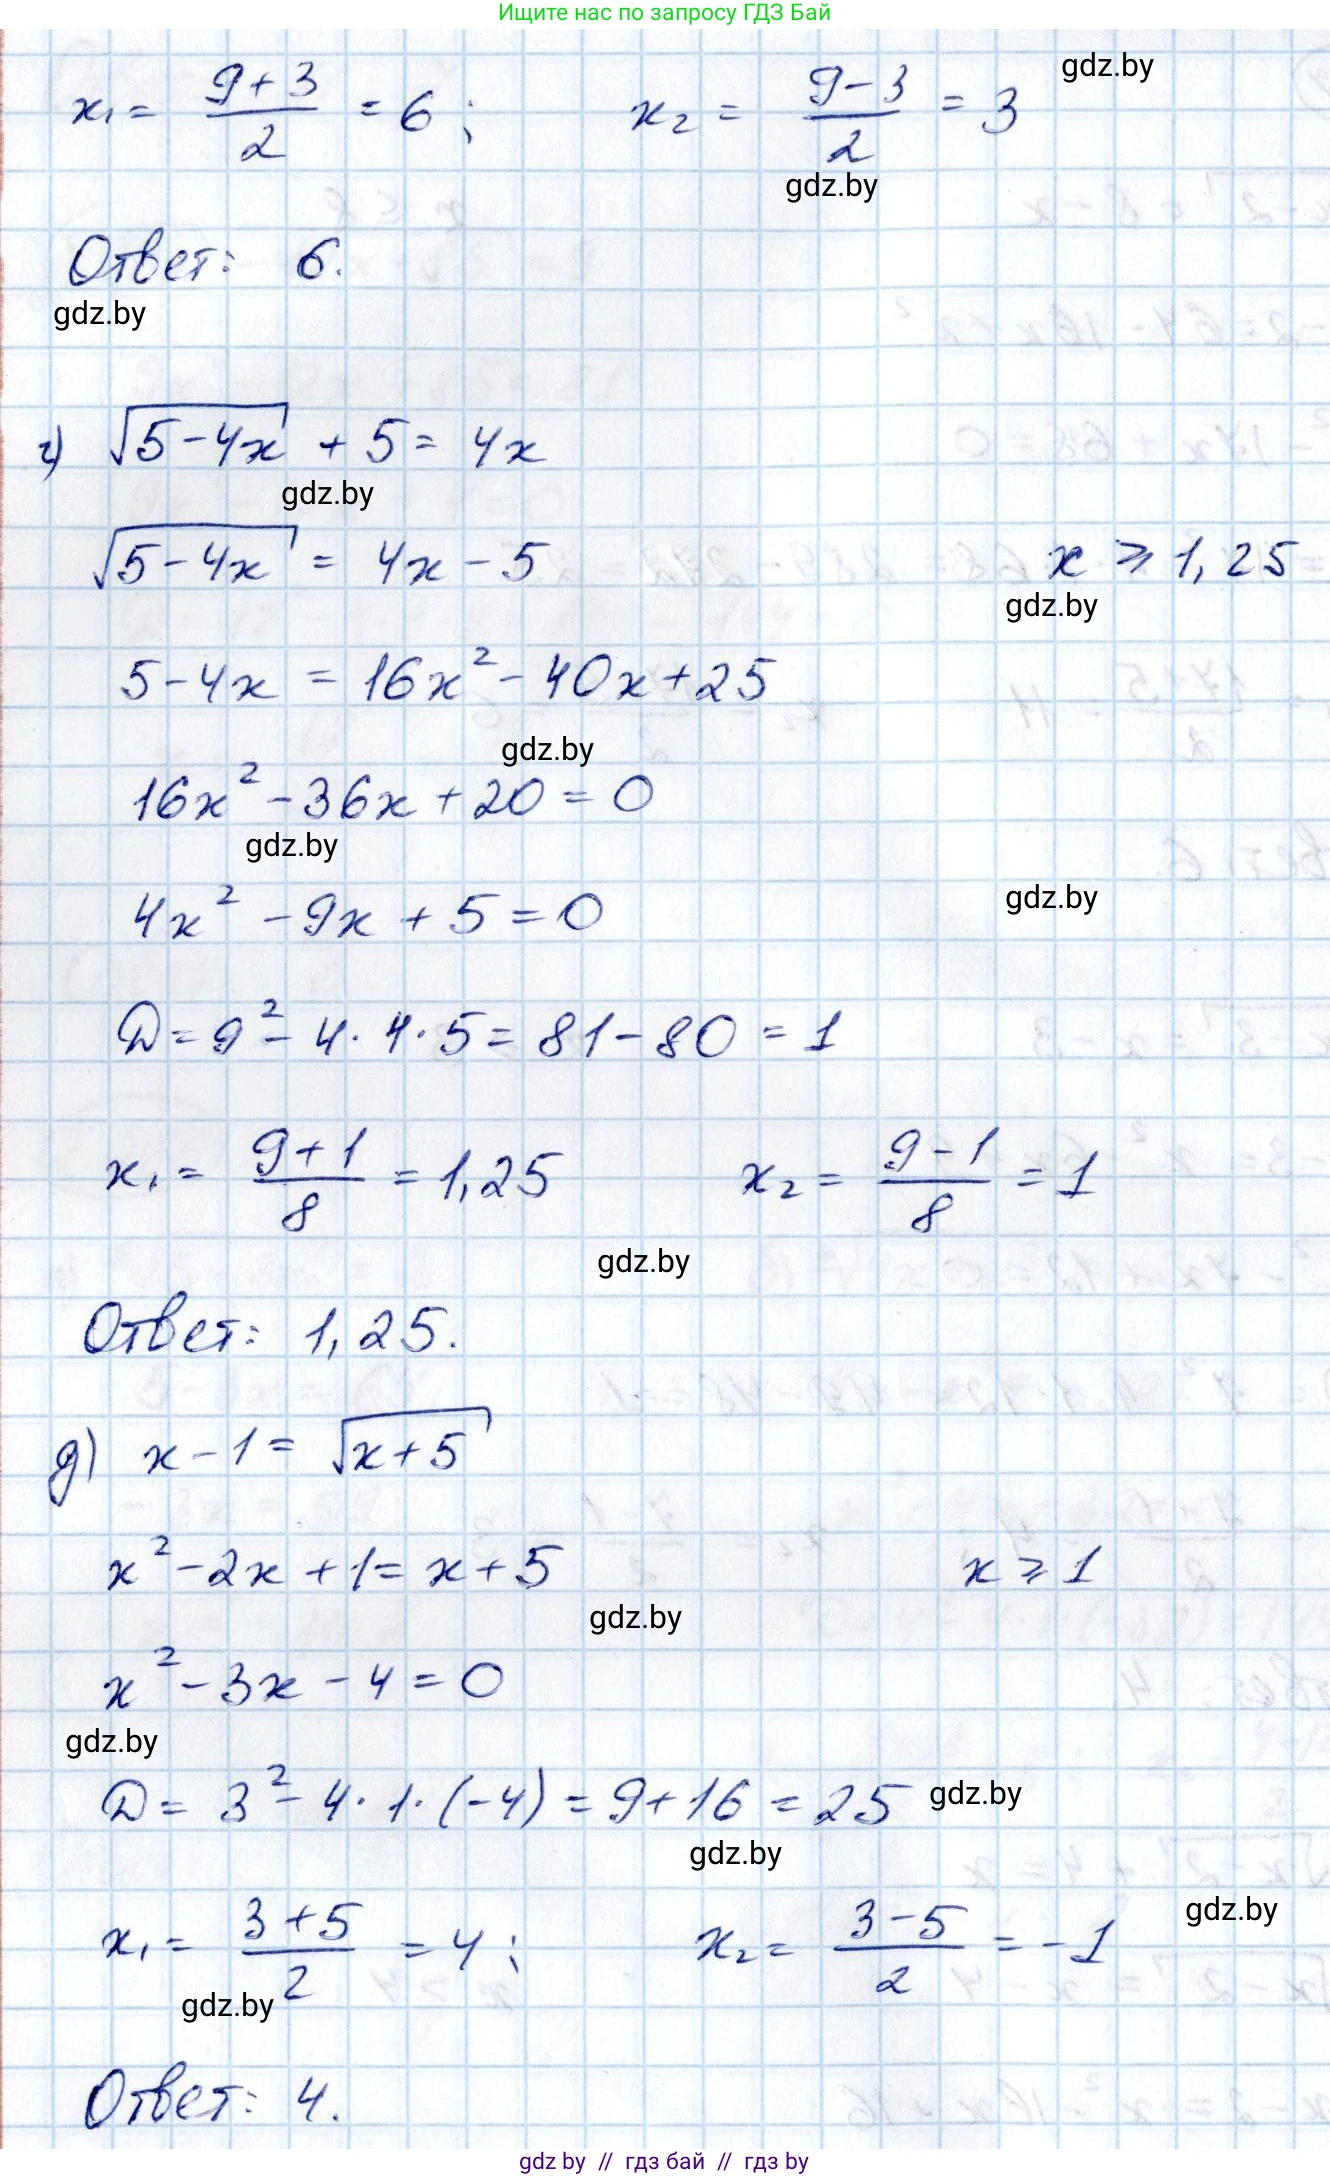 Ищите нас по запросу ГДЗ Бай
gdz.by
x₁ = (9+3)/2 = 6; x₂ = (9-3)/2 = 3
gdz.by
Ответ: 6.
gdz.by
г) √(5-4x) + 5 = 4x
gdz.by
√(5-4x) = 4x - 5 x ⩾ 1,25
gdz.by
5-4x = 16x² - 40x + 25
gdz.by
16x² - 36x + 20 = 0
gdz.by
4x² - 9x + 5 = 0
gdz.by
D = 9² - 4·4·5 = 81 - 80 = 1
x₁ = (9+1)/8 = 1,25 x₂ = (9-1)/8 = 1
gdz.by
Ответ: 1,25.
д) x - 1 = √(x+5)
x² - 2x + 1 = x + 5 x ⩾ 1
gdz.by
x² - 3x - 4 = 0
gdz.by
D = 3² - 4·1·(-4) = 9 + 16 = 25
gdz.by
gdz.by
x₁ = (3+5)/2 = 4; x₂ = (3-5)/2 = -1
gdz.by
gdz.by
Ответ: 4.
gdz by // гдз бай // гдз by